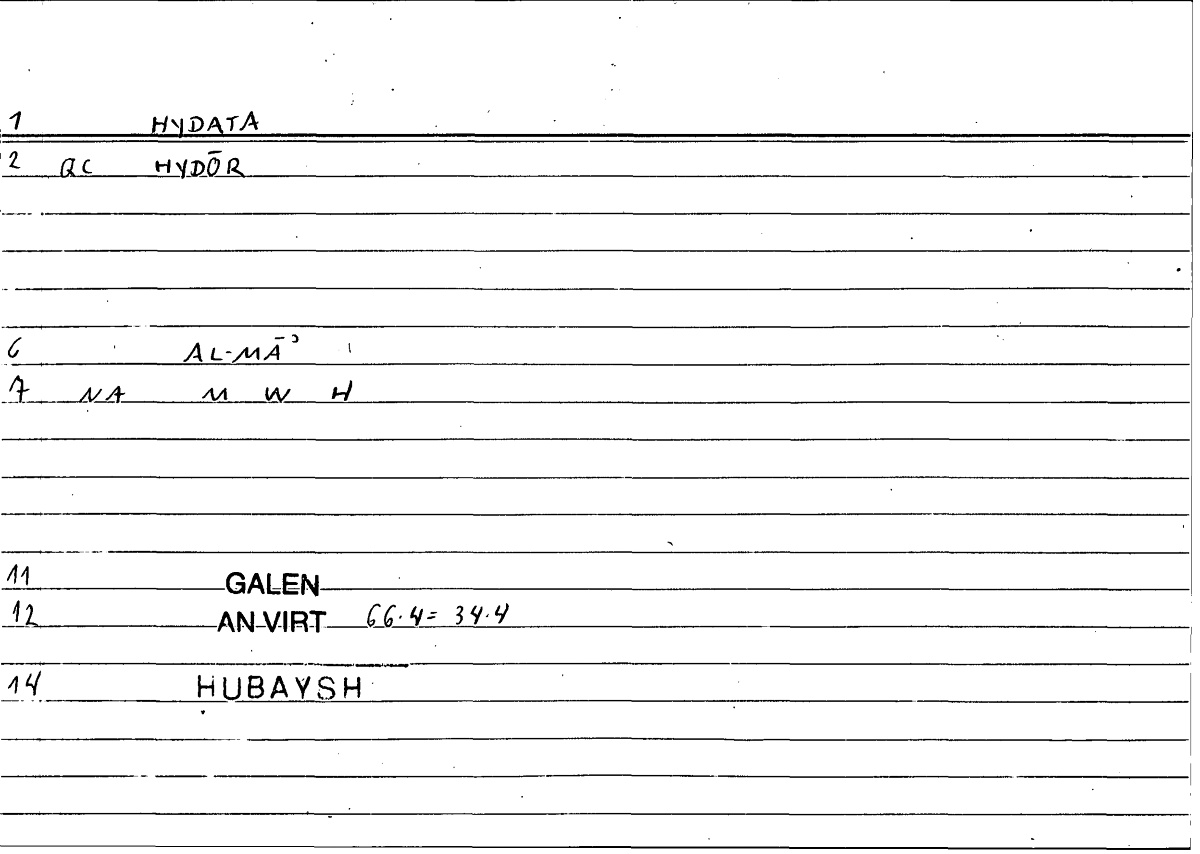 1 HYDATA
2 QC HYDŌR
6 AL-MĀʾ
7 NA M W H
11 GALEN
12 AN VIRT 66.4 = 34.4
14 HUBAYSH